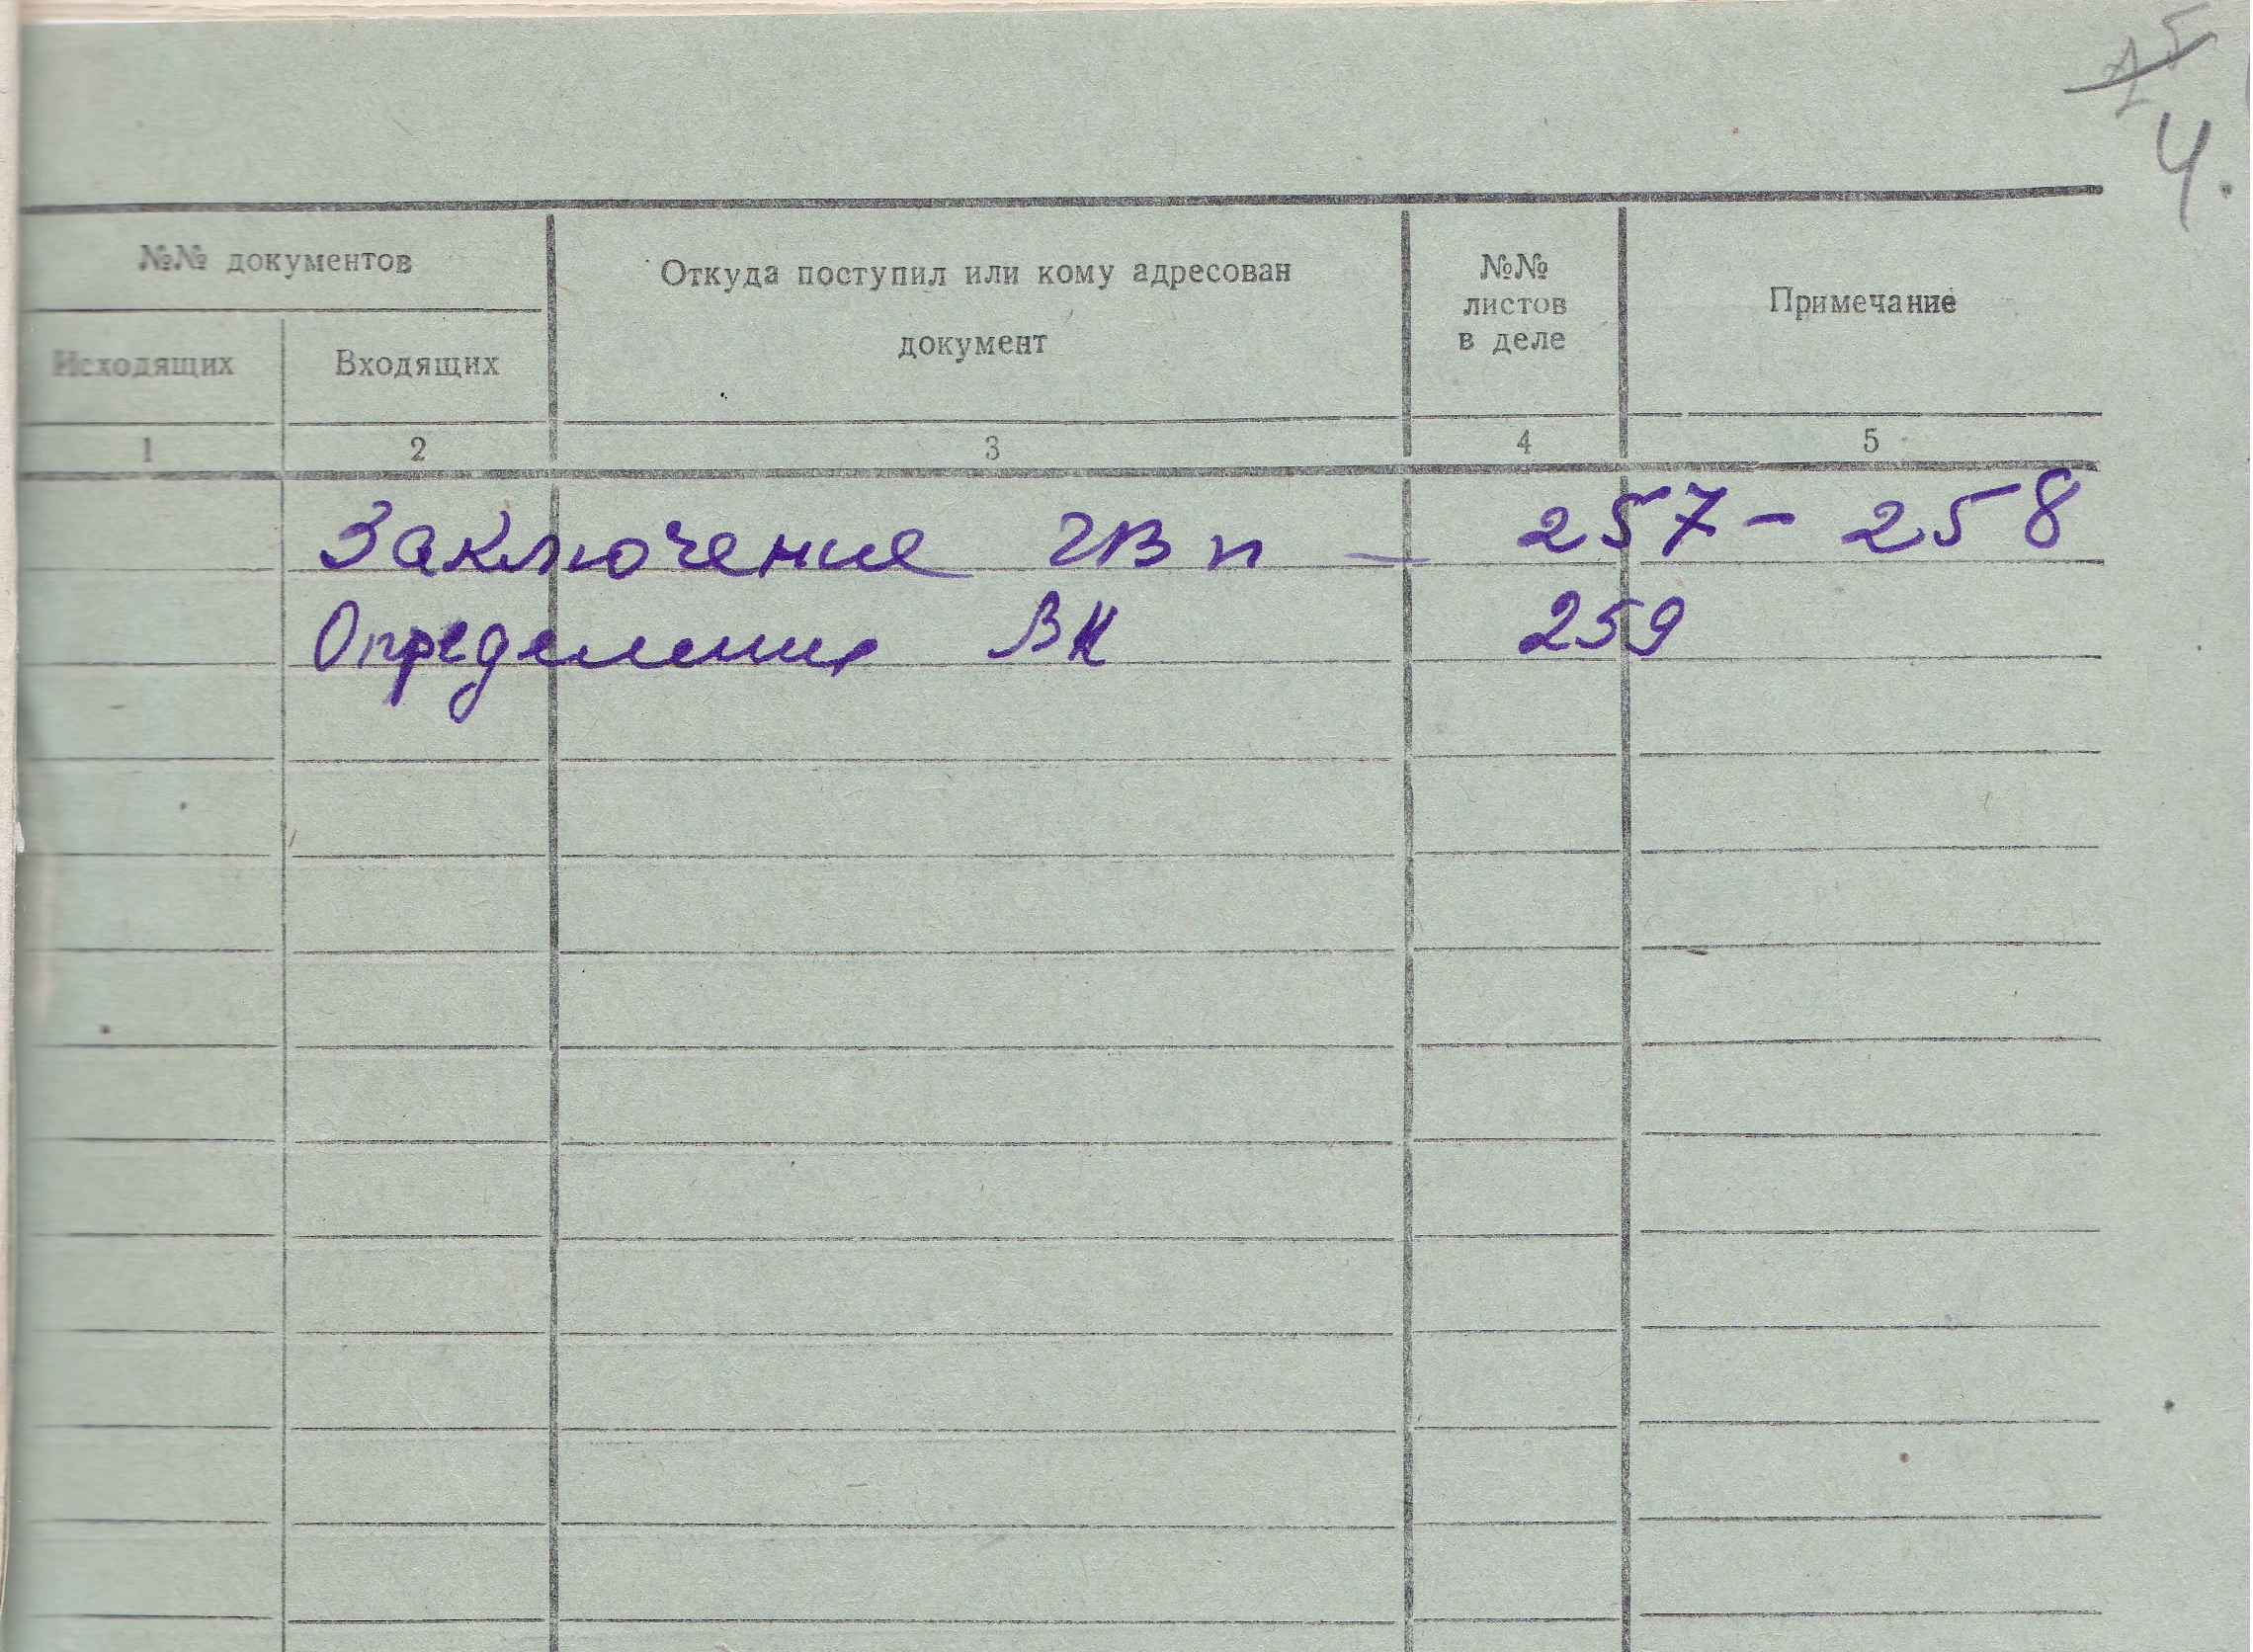 5
4.
№№ документов
Откуда поступил или кому адресован
документ
№№
листов
в деле
Примечание
Исходящих
Входящих
1
2
3
4
5
Заключение ГВП — 257 – 258
Определение ВК 259